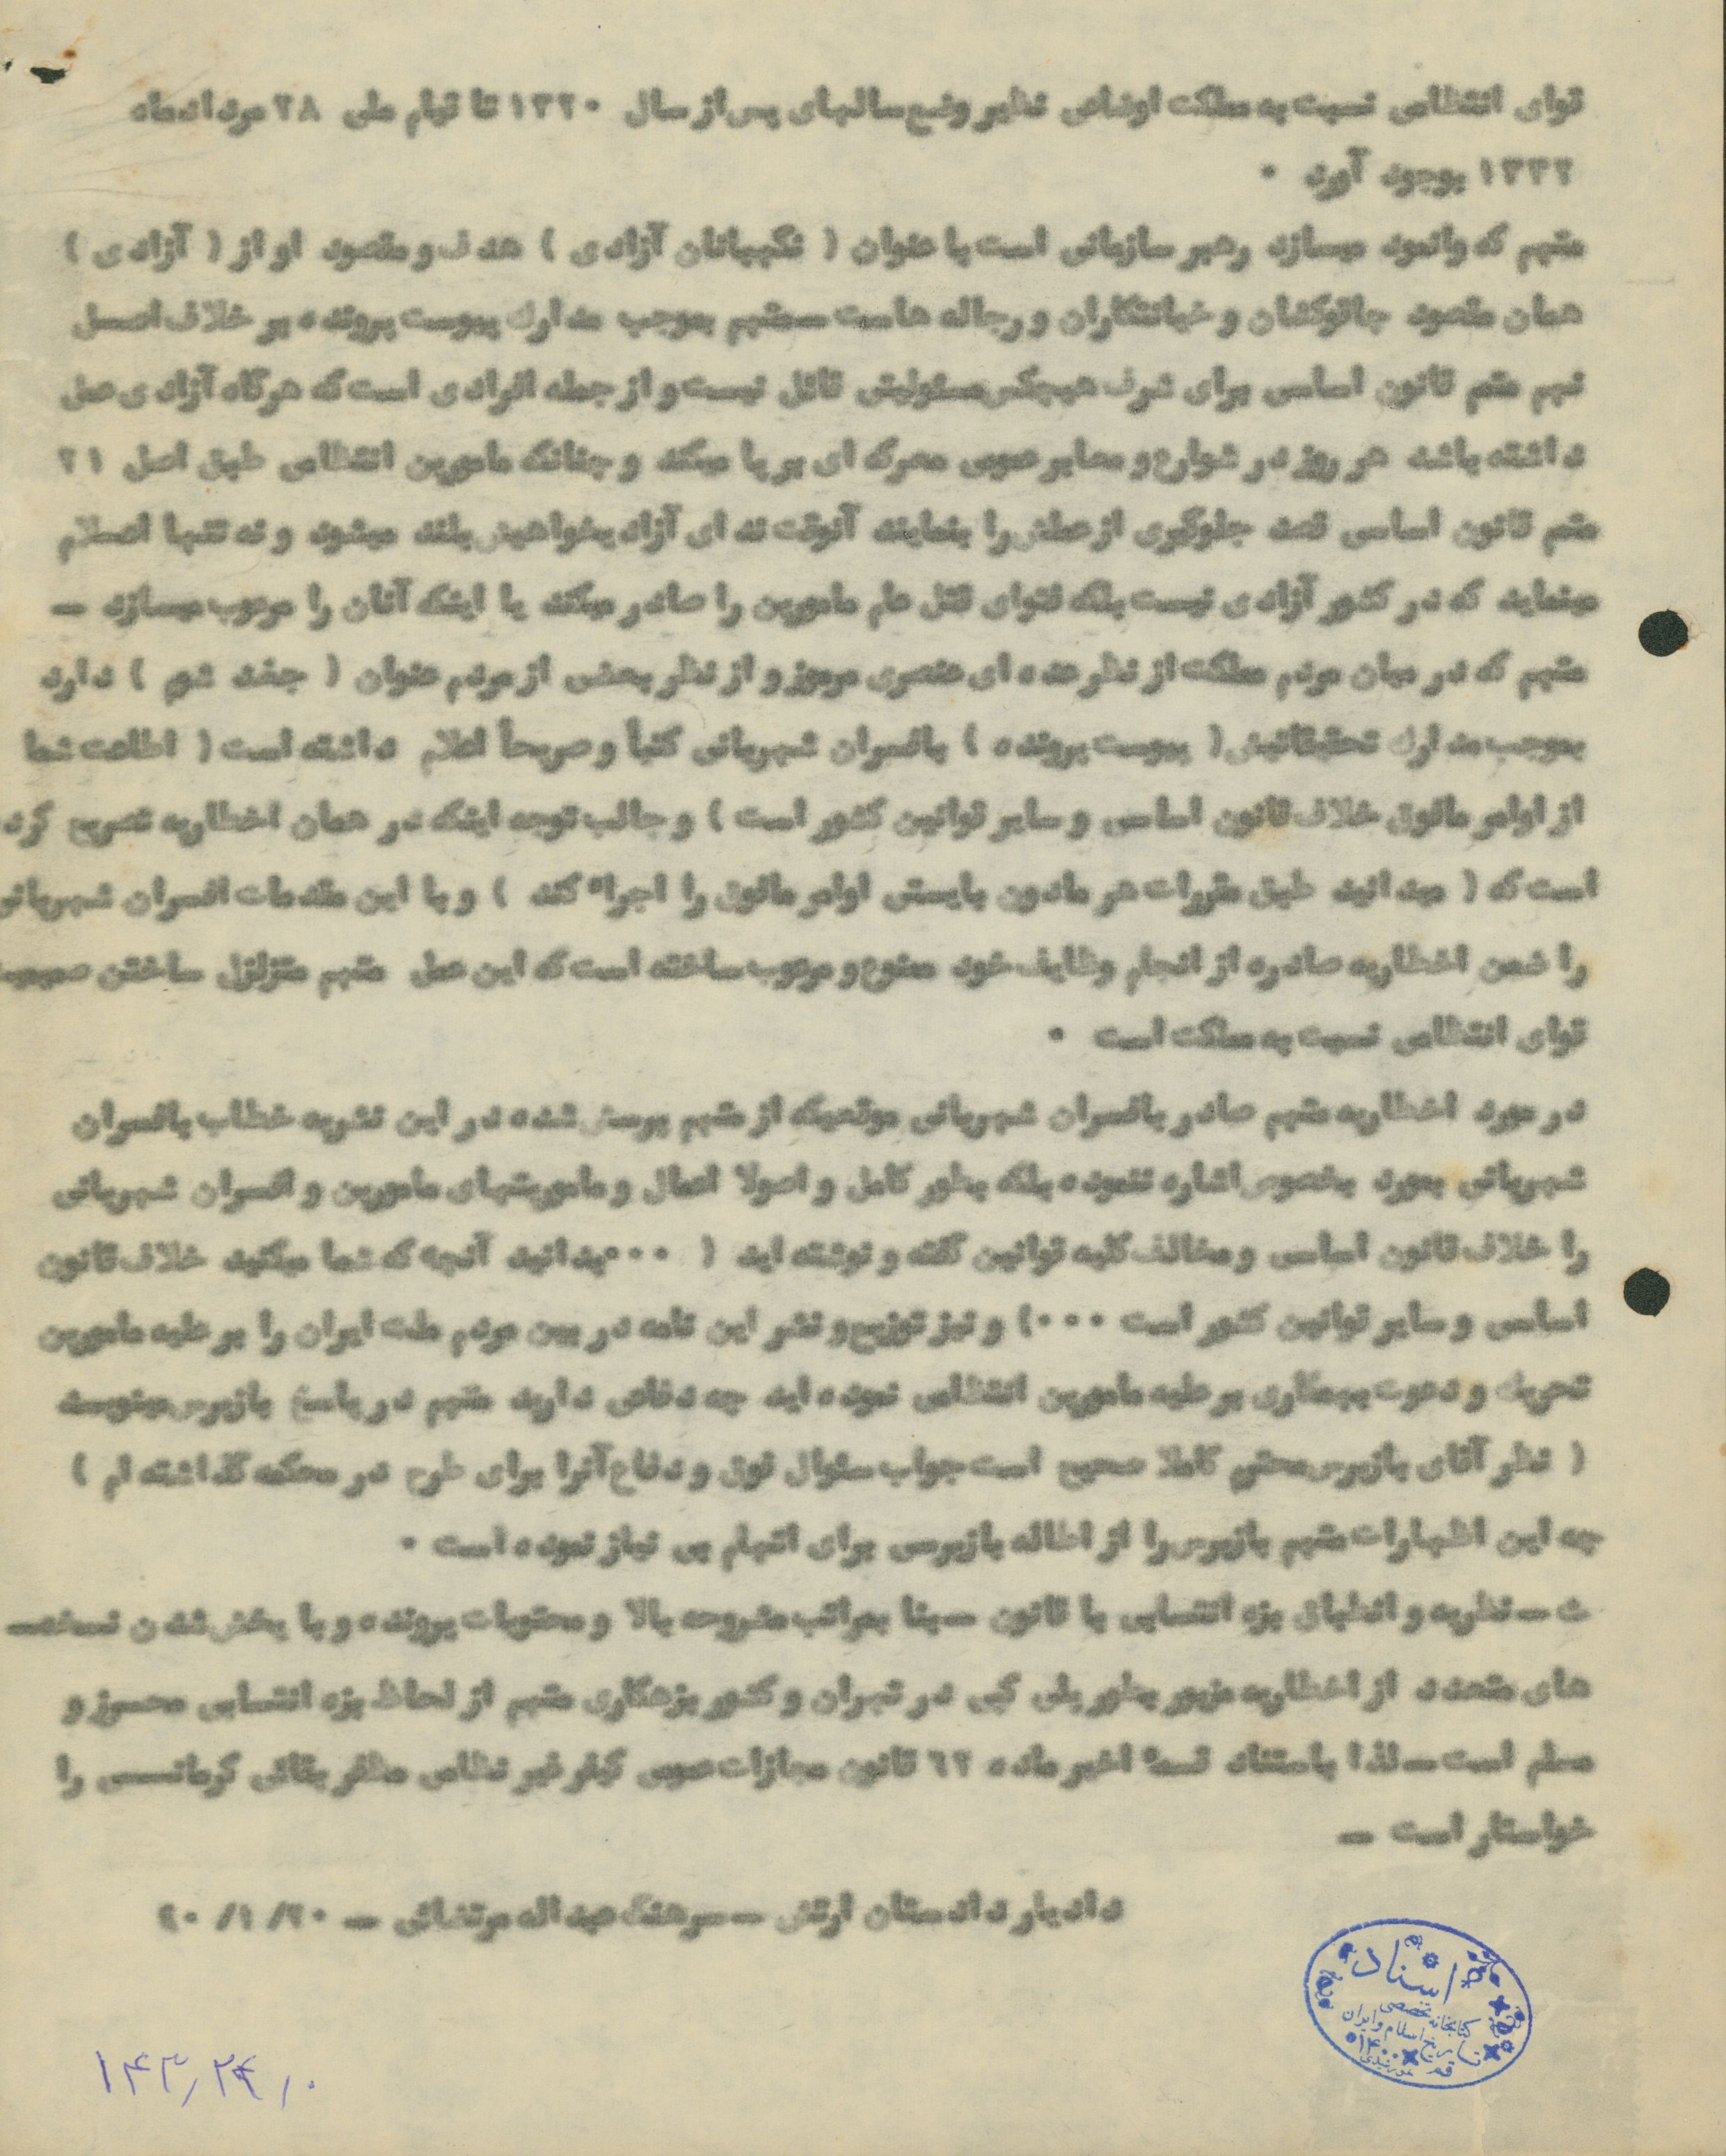 قوای انتظامی نسبت به مملکت اوضاعی نظیر وضع سالهای پس از سال ۱۳۲۰ تا قیام ملی ۲۸ مرداد ماه
۱۳۳۲ بوجود آورد ۰
متهم که وانمود میسازد رهبر سازمانی است با عنوان ( نگهبانان آزادی ) هدف و مقصود او از ( آزادی )
همان مقصود چاقوکشان و خیانتکاران و رجاله هاست ـ متهم بموجب مدارک پیوست پرونده بر خلاف اصل
نهم متمم قانون اساسی برای شرف هیچکس مسئولیتی قائل نیست و از جمله افرادی است که هرگاه آزادی عمل
داشته باشد هر روز در شوارع و معابر عمومی معرکه ای بر پا میکند و چنانکه مامورین انتظامی طبق اصل ۲۱
متمم قانون اساسی قصد جلوگیری از عملش را بنمایند آنوقت ندای آزادیخواهیش بلند میشود و نه تنها اعلام
مینماید که در کشور آزادی نیست بلکه فتوای قتل عام مامورین را صادر میکند یا اینکه آنان را مرعوب میسازد ـ
متهم که در میان مردم مملکت از نظر عده ای عنصری مرموز و از نظر بعضی از مردم عنوان ( جغد شوم ) دارد
بموجب مدارک تحقیقاتیش ( پیوست پرونده ) بافسران شهربانی کتباً و صریحاً اعلام داشته است ( اطاعت شما
از اوامر مافوق خلاف قانون اساسی و سایر قوانین کشور است ) و جالب توجه اینکه در همان اخطاریه تصریح کرده
است که ( میدانید طبق مقررات هر مادون بایستی اوامر مافوق را اجراء کند ) و با این مقدمات افسران شهربانی
را ضمن اخطاریه صادره از انجام وظایف خود ممنوع و مرعوب ساخته است که این عمل متهم متزلزل ساختن صمیمیت
قوای انتظامی نسبت به مملکت است ۰
در مورد اخطاریه متهم صادر بافسران شهربانی موقعیکه از متهم پرسش شده در این نشریه خطاب بافسران
شهربانی بمورد بخصوص اشاره ننموده بلکه بطور کامل و اصولا اعمال و ماموریتهای مامورین و افسران شهربانی
را خلاف قانون اساسی و مخالف کلیه قوانین گفته و نوشته اید ( ۰۰۰ بدانید آنچه که شما میکنید خلاف قانون
اساسی و سایر قوانین کشور است ۰۰۰) و نیز توزیع و نشر این نامه در بین مردم ملت ایران را بر علیه مامورین
تحریک و دعوت بهمکاری بر علیه مامورین انتظامی نموده اید چه دفاعی دارید متهم در پاسخ بازپرس مینویسد
( نظر آقای بازپرس محترم کاملا صحیح است جواب سئوال فوق و دفاع آنرا برای طرح در محکمه گذاشته ام )
چه این اظهارات متهم بازپرس را از اطاله بازپرسی برای اتهام بی نیاز نموده است ۰
ث ـ نظریه و انطباق بزه انتسابی با قانون ـ بنا بمراتب مشروحه بالا و محتویات پرونده و با پخش شدن نسخه ـ
های متعدد از اخطاریه مزبور بطور پلی کپی در تهران و کشور بزهکاری متهم از لحاظ بزه انتسابی محرز و
مسلم است ـ لذا باستناد قسمت اخیر ماده ۶۲ قانون مجازات عمومی کیفر غیر نظامی مظفر بقائی کرمانی را
خواستار است ـ
دادیار دادستان ارتش ـ سرهنگ عبداله مرتضائی ـ ۲۰/ ۱/ ۴۰
اسناد
کتابخانه تخصصی
تاریخ اسلام و ایران
۱۴۰۰
قم
۱۴۳٫۲۴٫۰